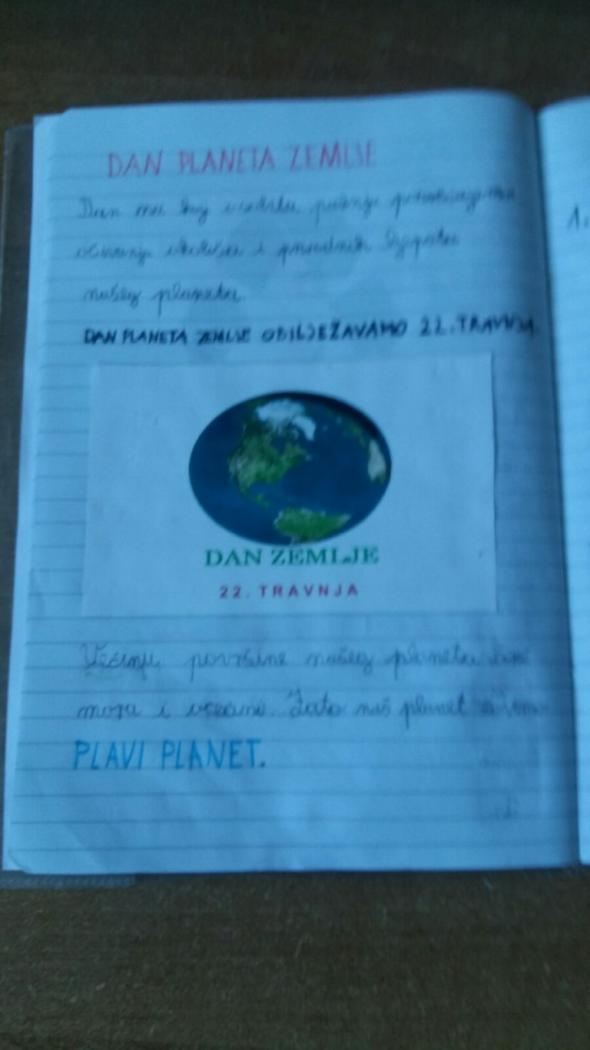 DAN PLANETA ZEMLJE
Dan na koji
očuvanju okoliša i prirodnih ljepota
našeg planeta.
DAN PLANETA ZEMLJE OBILJEŽAVAMO 22. TRAVNJA.
DAN ZEMLJE
22. TRAVNJA
Većinu površine našeg planeta čine
mora i oceani. Zato naš planet
PLAVI PLANET.
1.